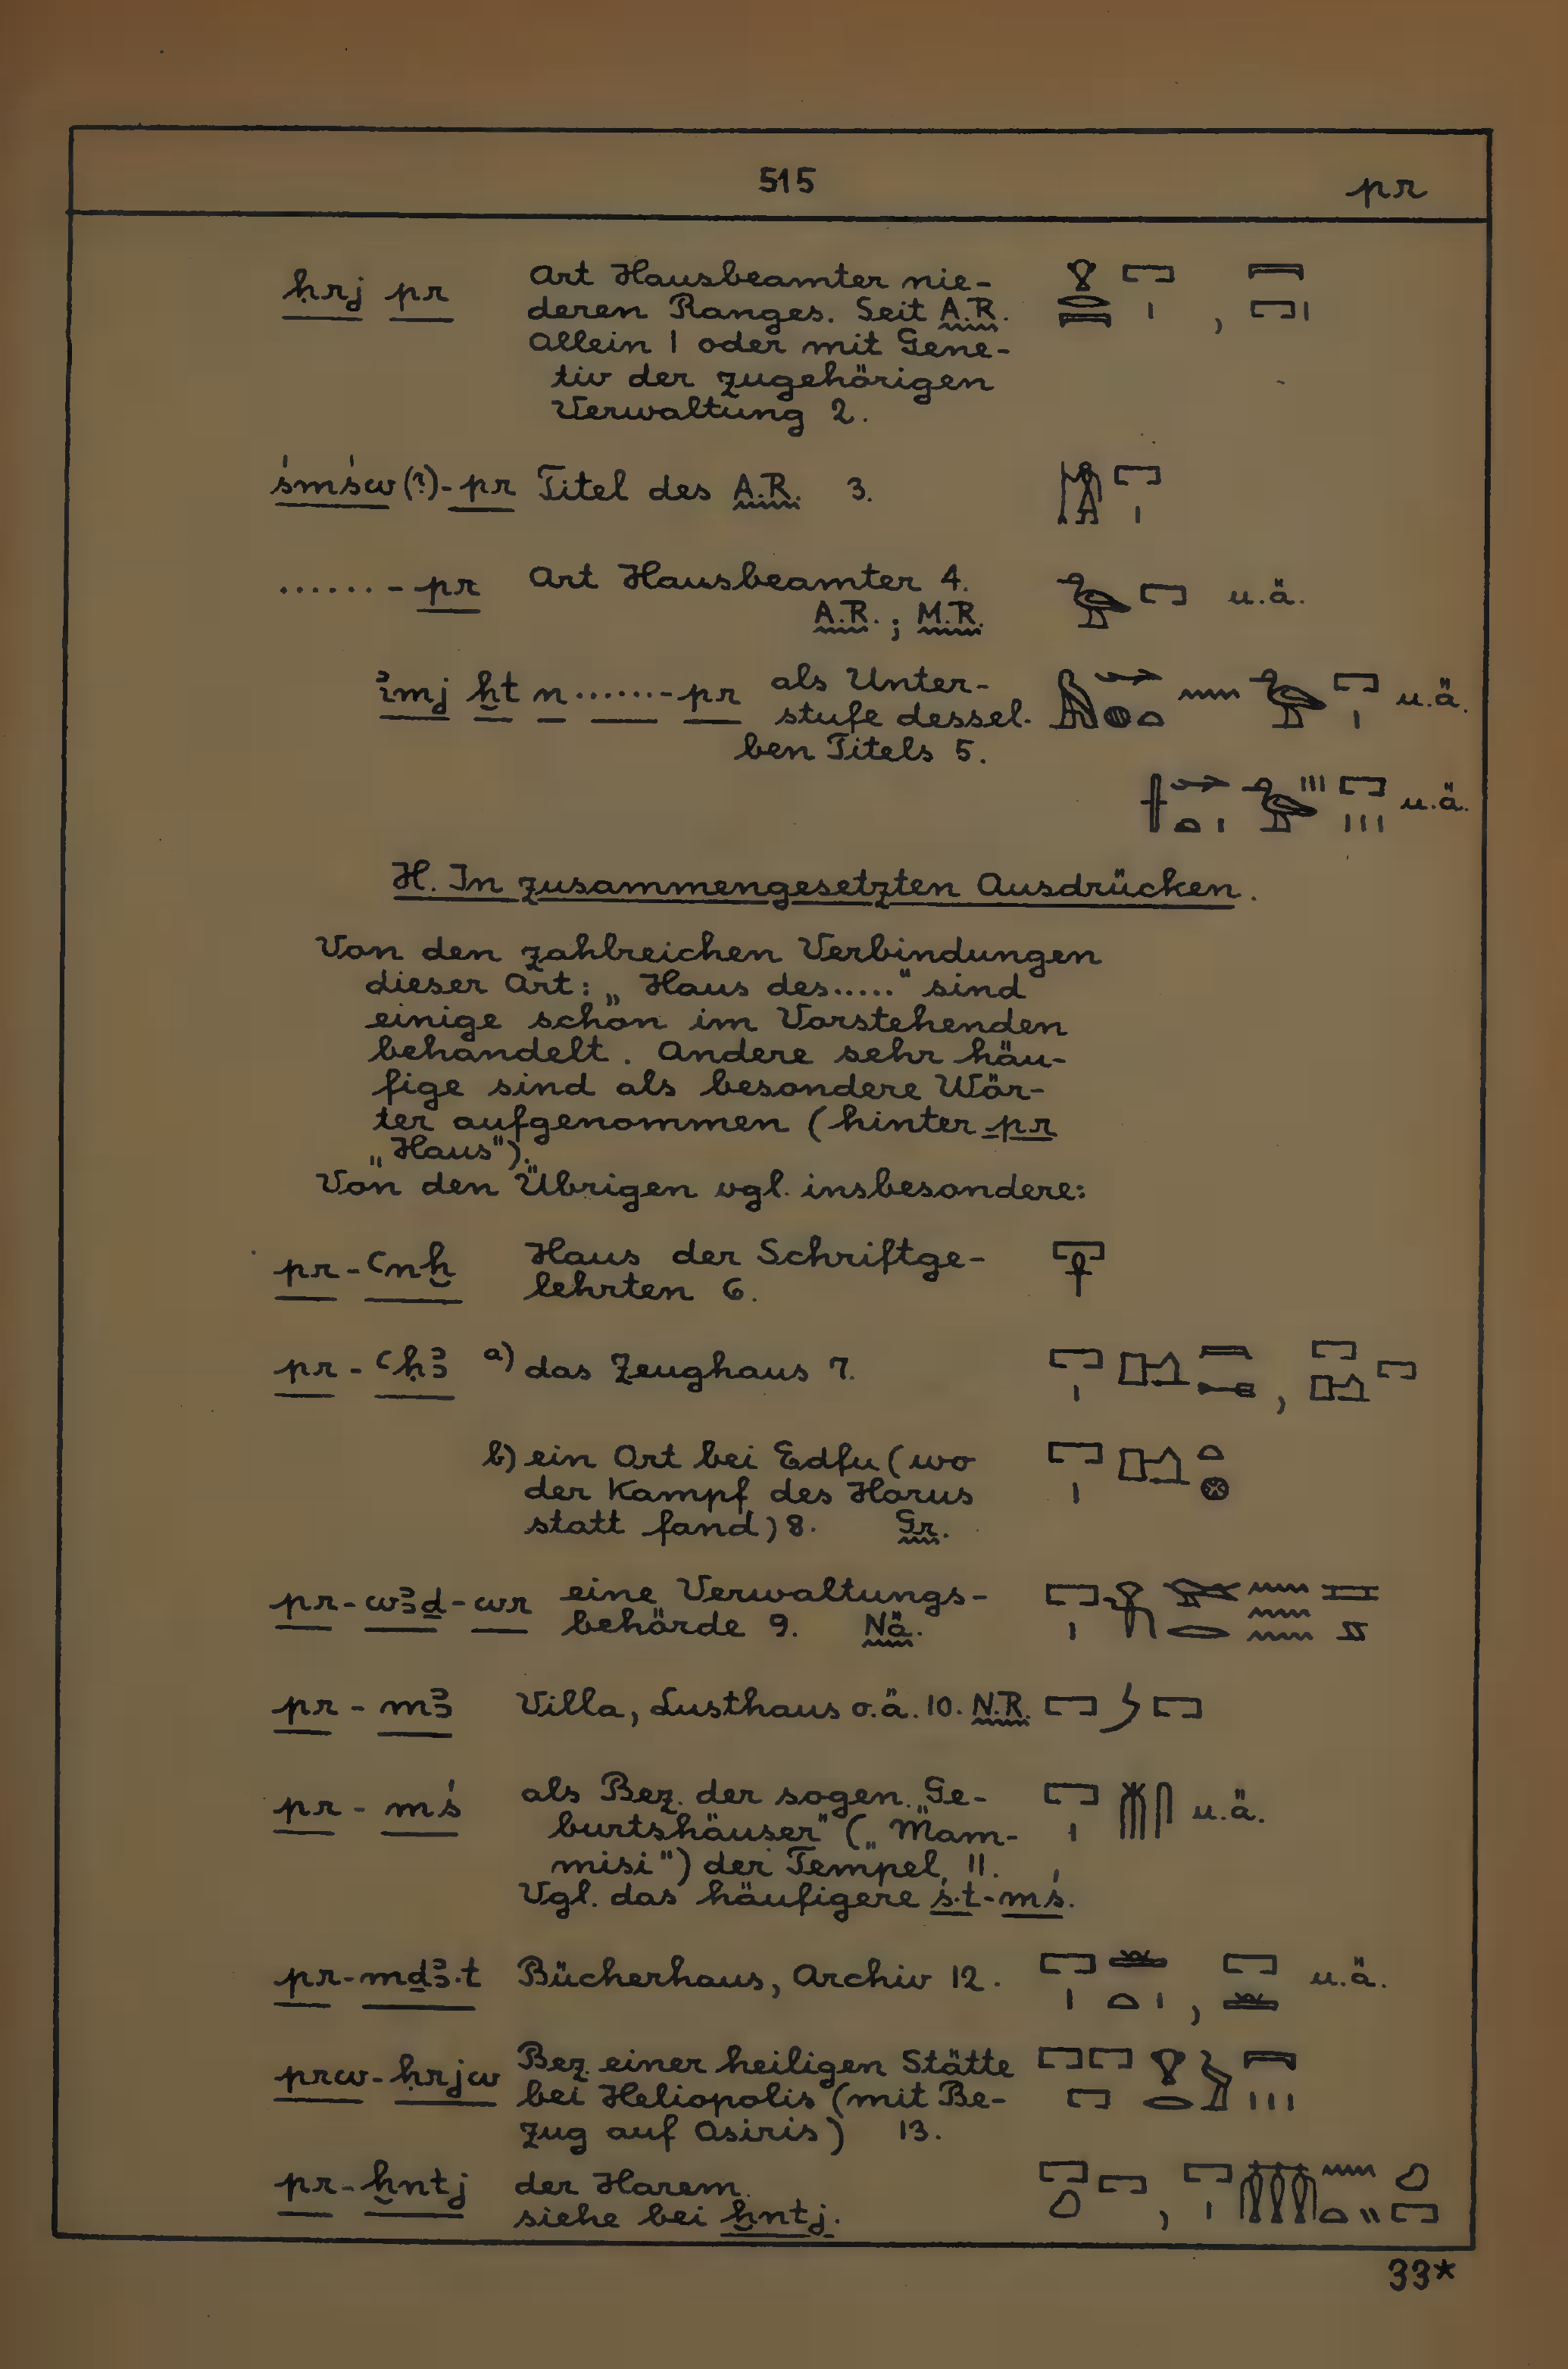 515 pr
ḥrj pr Art Hausbeamter nie-
deren Ranges. Seit A.R.
Allein 1 oder mit Gene-
tiv der zugehörigen
Verwaltung 2.
śmśw(?)-pr Titel des A.R. 3.
.......-pr Art Hausbeamter 4. u.ä.
A.R.; M.R.
ỉmj ḫt n.......-pr als Unter-
stufe dessel- u.ä.
ben Titels 5.
u.ä.
H. In zusammengesetzten Ausdrücken.
Von den zahlreichen Verbindungen
dieser Art: „Haus des....." sind
einige schon im Vorstehenden
behandelt. Andere sehr häu-
fige sind als besondere Wör-
ter aufgenommen (hinter pr
„Haus").
Von den Übrigen vgl. insbesondere:
pr-ꜥnḫ Haus der Schriftge-
lehrten 6.
pr-ꜥḥꜣ a) das Zeughaus 7. ,
b) ein Ort bei Edfu (wo
der Kampf des Horus
statt fand) 8. Gr.
pr-wꜣḏ-wr eine Verwaltungs-
behörde 9. Nä.
pr-mꜣ Villa, Lusthaus o.ä. 10. N.R.
pr-mś als Bez. der sogen. „Ge-
burtshäuser" („Mam- u.ä.
misi") der Tempel, 11.
Vgl. das häufigere ś.t-mś.
pr-mḏꜣ.t Bücherhaus, Archiv 12. , u.ä.
prw-ḥrjw Bez. einer heiligen Stätte
bei Heliopolis (mit Be-
zug auf Osiris) 13.
pr-ḫntj der Harem.
siehe bei ḫntj.
33*